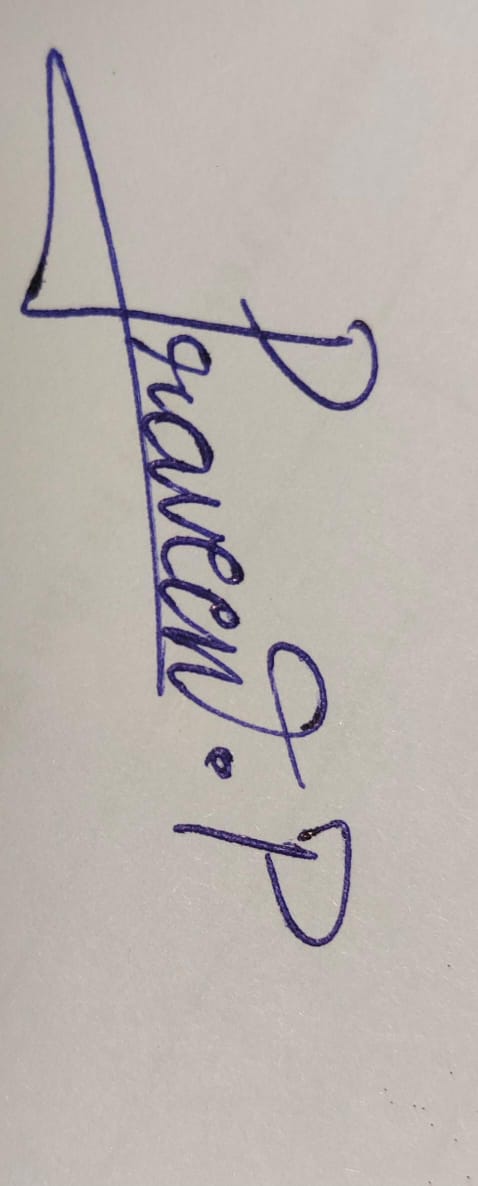 Praveen. P